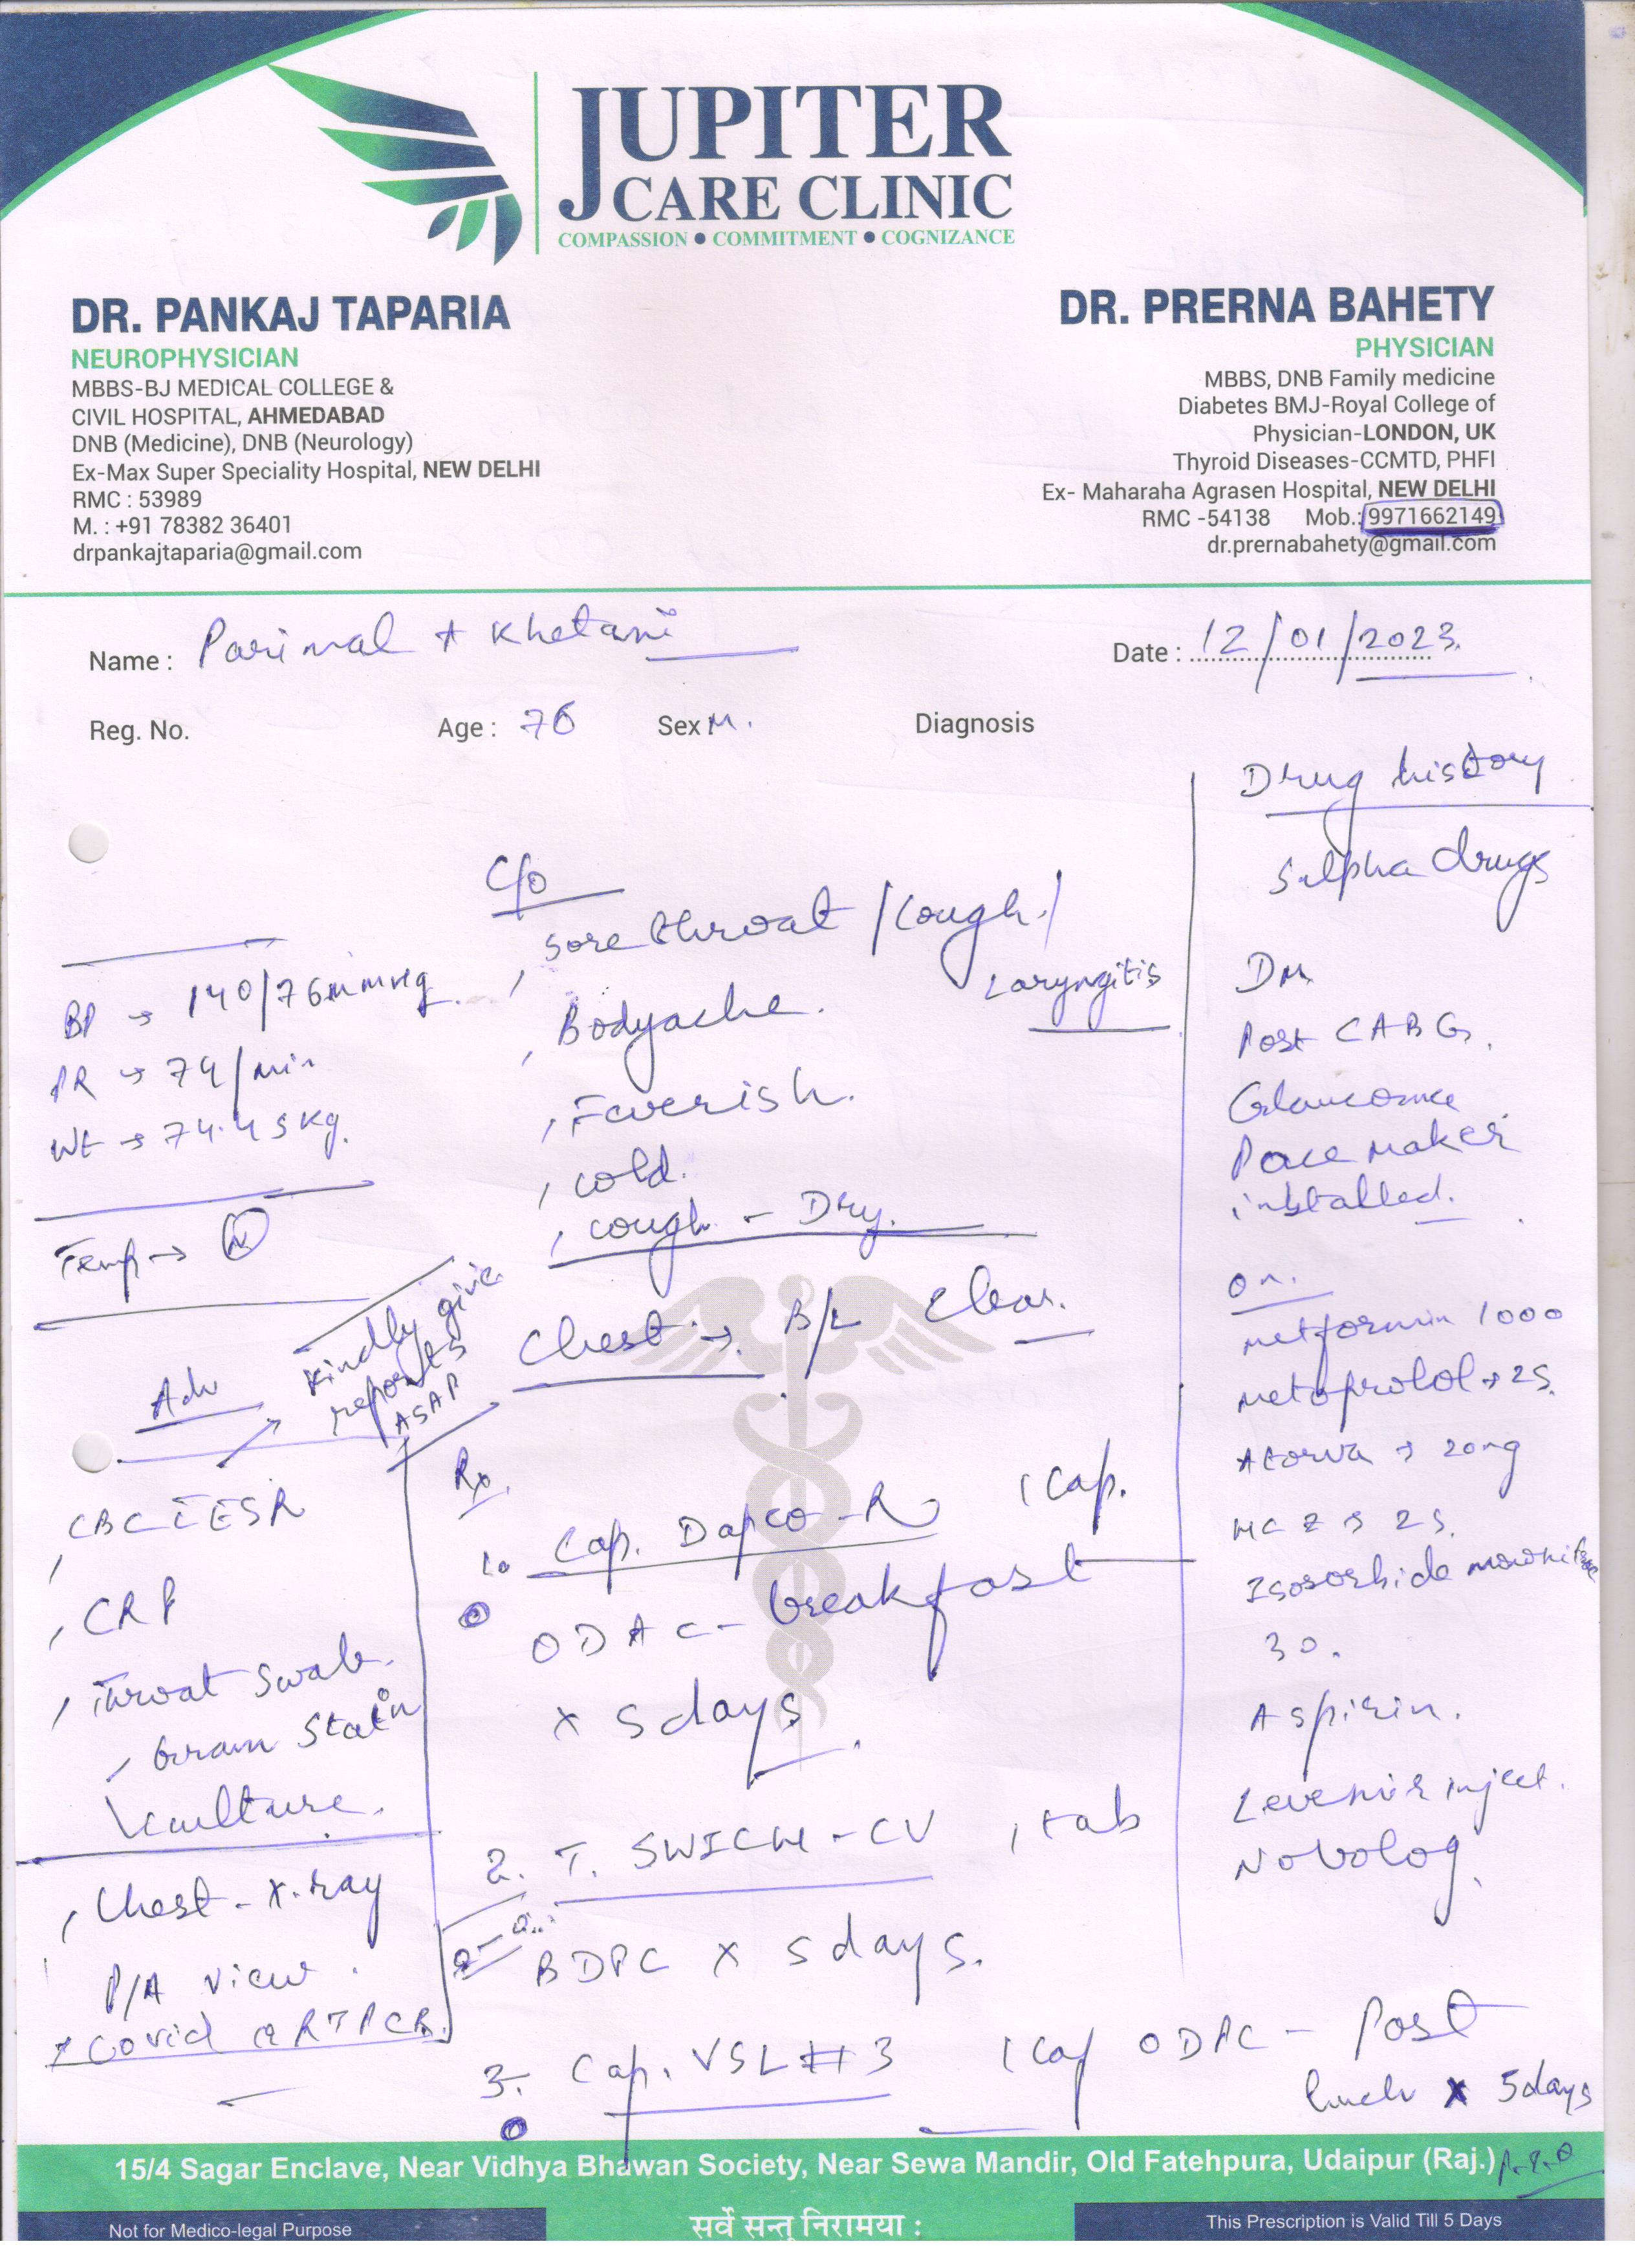 JUPITER
CARE CLINIC
COMPASSION ● COMMITMENT ● COGNIZANCE
DR. PANKAJ TAPARIA
NEUROPHYSICIAN
MBBS-BJ MEDICAL COLLEGE &
CIVIL HOSPITAL, AHMEDABAD
DNB (Medicine), DNB (Neurology)
Ex-Max Super Speciality Hospital, NEW DELHI
RMC : 53989
M. : +91 78382 36401
drpankajtaparia@gmail.com
DR. PRERNA BAHETY
PHYSICIAN
MBBS, DNB Family medicine
Diabetes BMJ-Royal College of
Physician-LONDON, UK
Thyroid Diseases-CCMTD, PHFI
Ex- Maharaha Agrasen Hospital, NEW DELHI
RMC -54138 Mob.: 9971662149
dr.prernabahety@gmail.com
Name : Parimal Khetani
Date : 12/01/2023.
Reg. No. Age : 76 Sex M. Diagnosis
BP → 140/76mmHg
PR → 74/min
Wt → 74.45 kg.
Temp → N
Adv
Kindly give
reports
ASAP
CBC c̄ ESR
CRP
Throat Swab.
Gram Stain
culture.
Chest - X-ray
P/A view.
Covid RTPCR.
C/o
Sore throat / Cough /
Laryngitis
Bodyache.
Feverish.
cold.
cough - Dry.
Chest → B/L Clear.
Rx.
1. Cap. Dapco-R 1 Cap.
ODAC - breakfast
x 5 days.
2. T. SWICH - CV 1 tab
BDPC x 5 days.
3. Cap. VSL # 3 1 Cap ODPC - Post
lunch x 5 days
Drug history
Sulpha drugs
DM
Post CABG.
Glaucoma
Pace maker
installed.
on.
Metformin 1000
Metoprolol → 25.
Atorva → 20mg
HCZ → 25.
Isosorbide
30.
Aspirin.
Levemir inject.
Novolog.
15/4 Sagar Enclave, Near Vidhya Bhawan Society, Near Sewa Mandir, Old Fatehpura, Udaipur (Raj.) P.T.O
Not for Medico-legal Purpose
सर्वे सन्तु निरामया :
This Prescription is Valid Till 5 Days